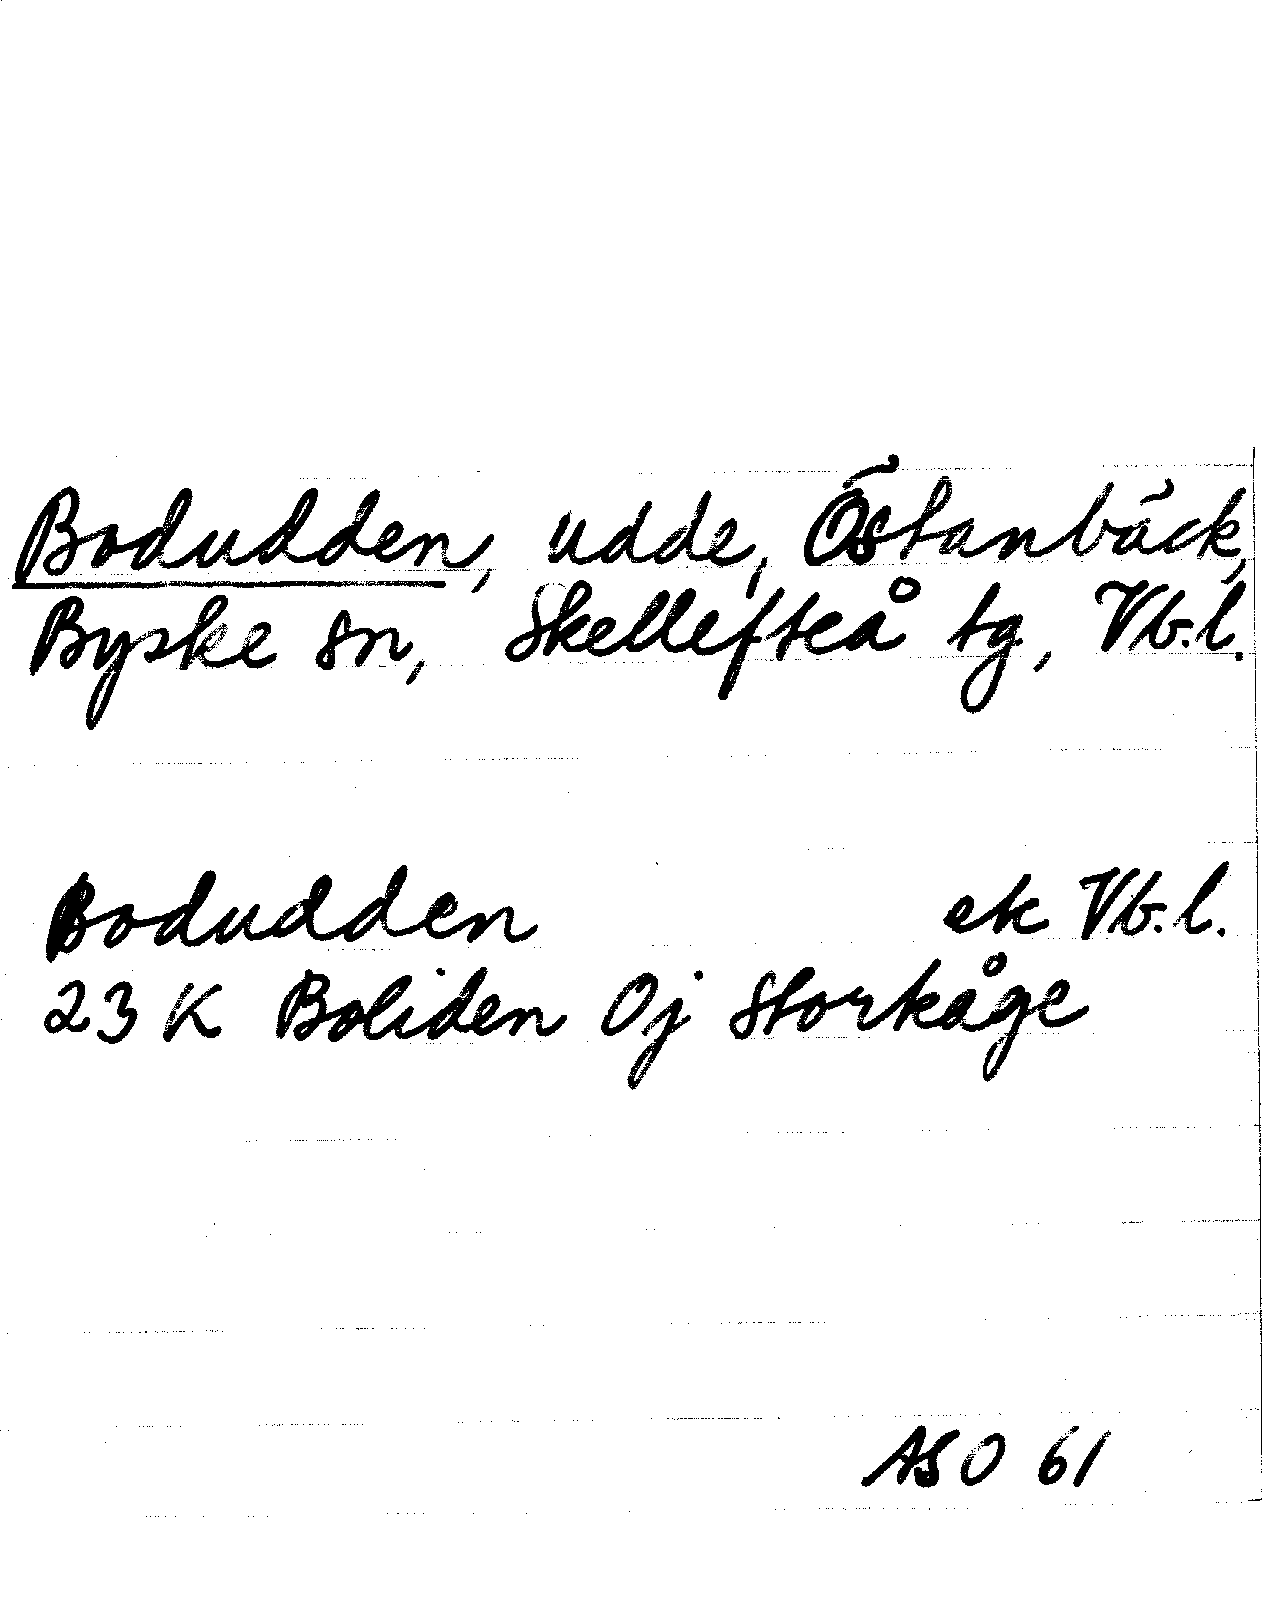 Bodudden, udde, Östanbäck,
Byske sn, Skellefteå tg, Vb.l.
Bodudden ek Vb.l.
23 K Boliden Oj Storkåge
ASO 61